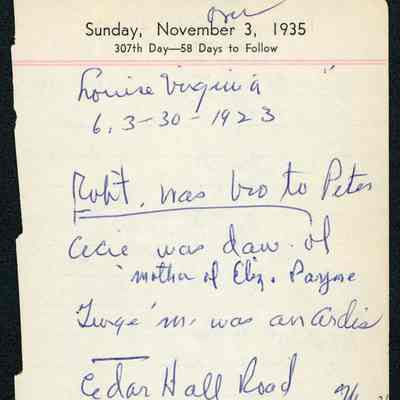 over
Sunday, November 3, 1935
307th Day—58 Days to Follow
Louise Virginia "
6, 3-30-1923
Robt. was bro to Peter
Cecie was daw. of
mother of Eliz. Payne
was an Ardis
Cedar Hall Road